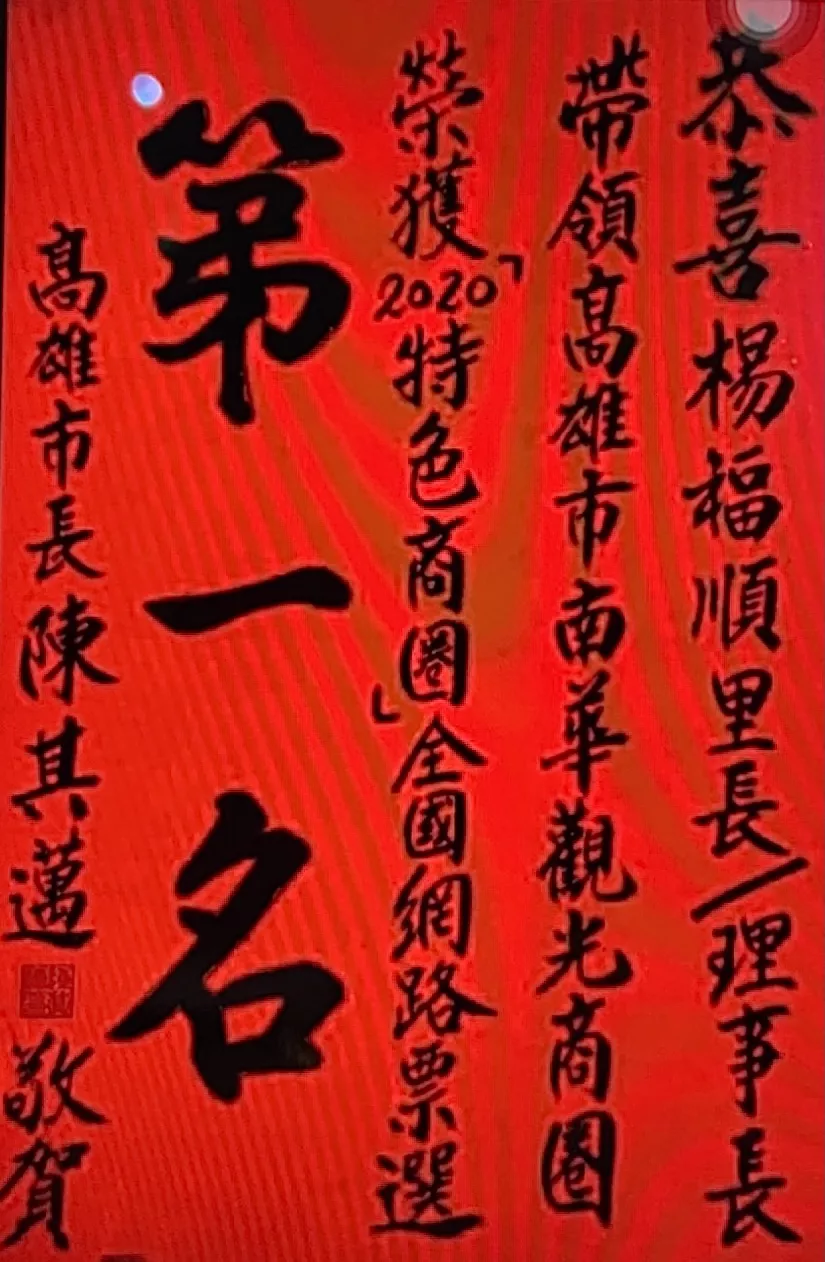 恭喜楊福順里長/理事長
帶領高雄市南華觀光商圈
榮獲「2020特色商圈」全國網路票選
第一名
高雄市長陳其邁
敬賀